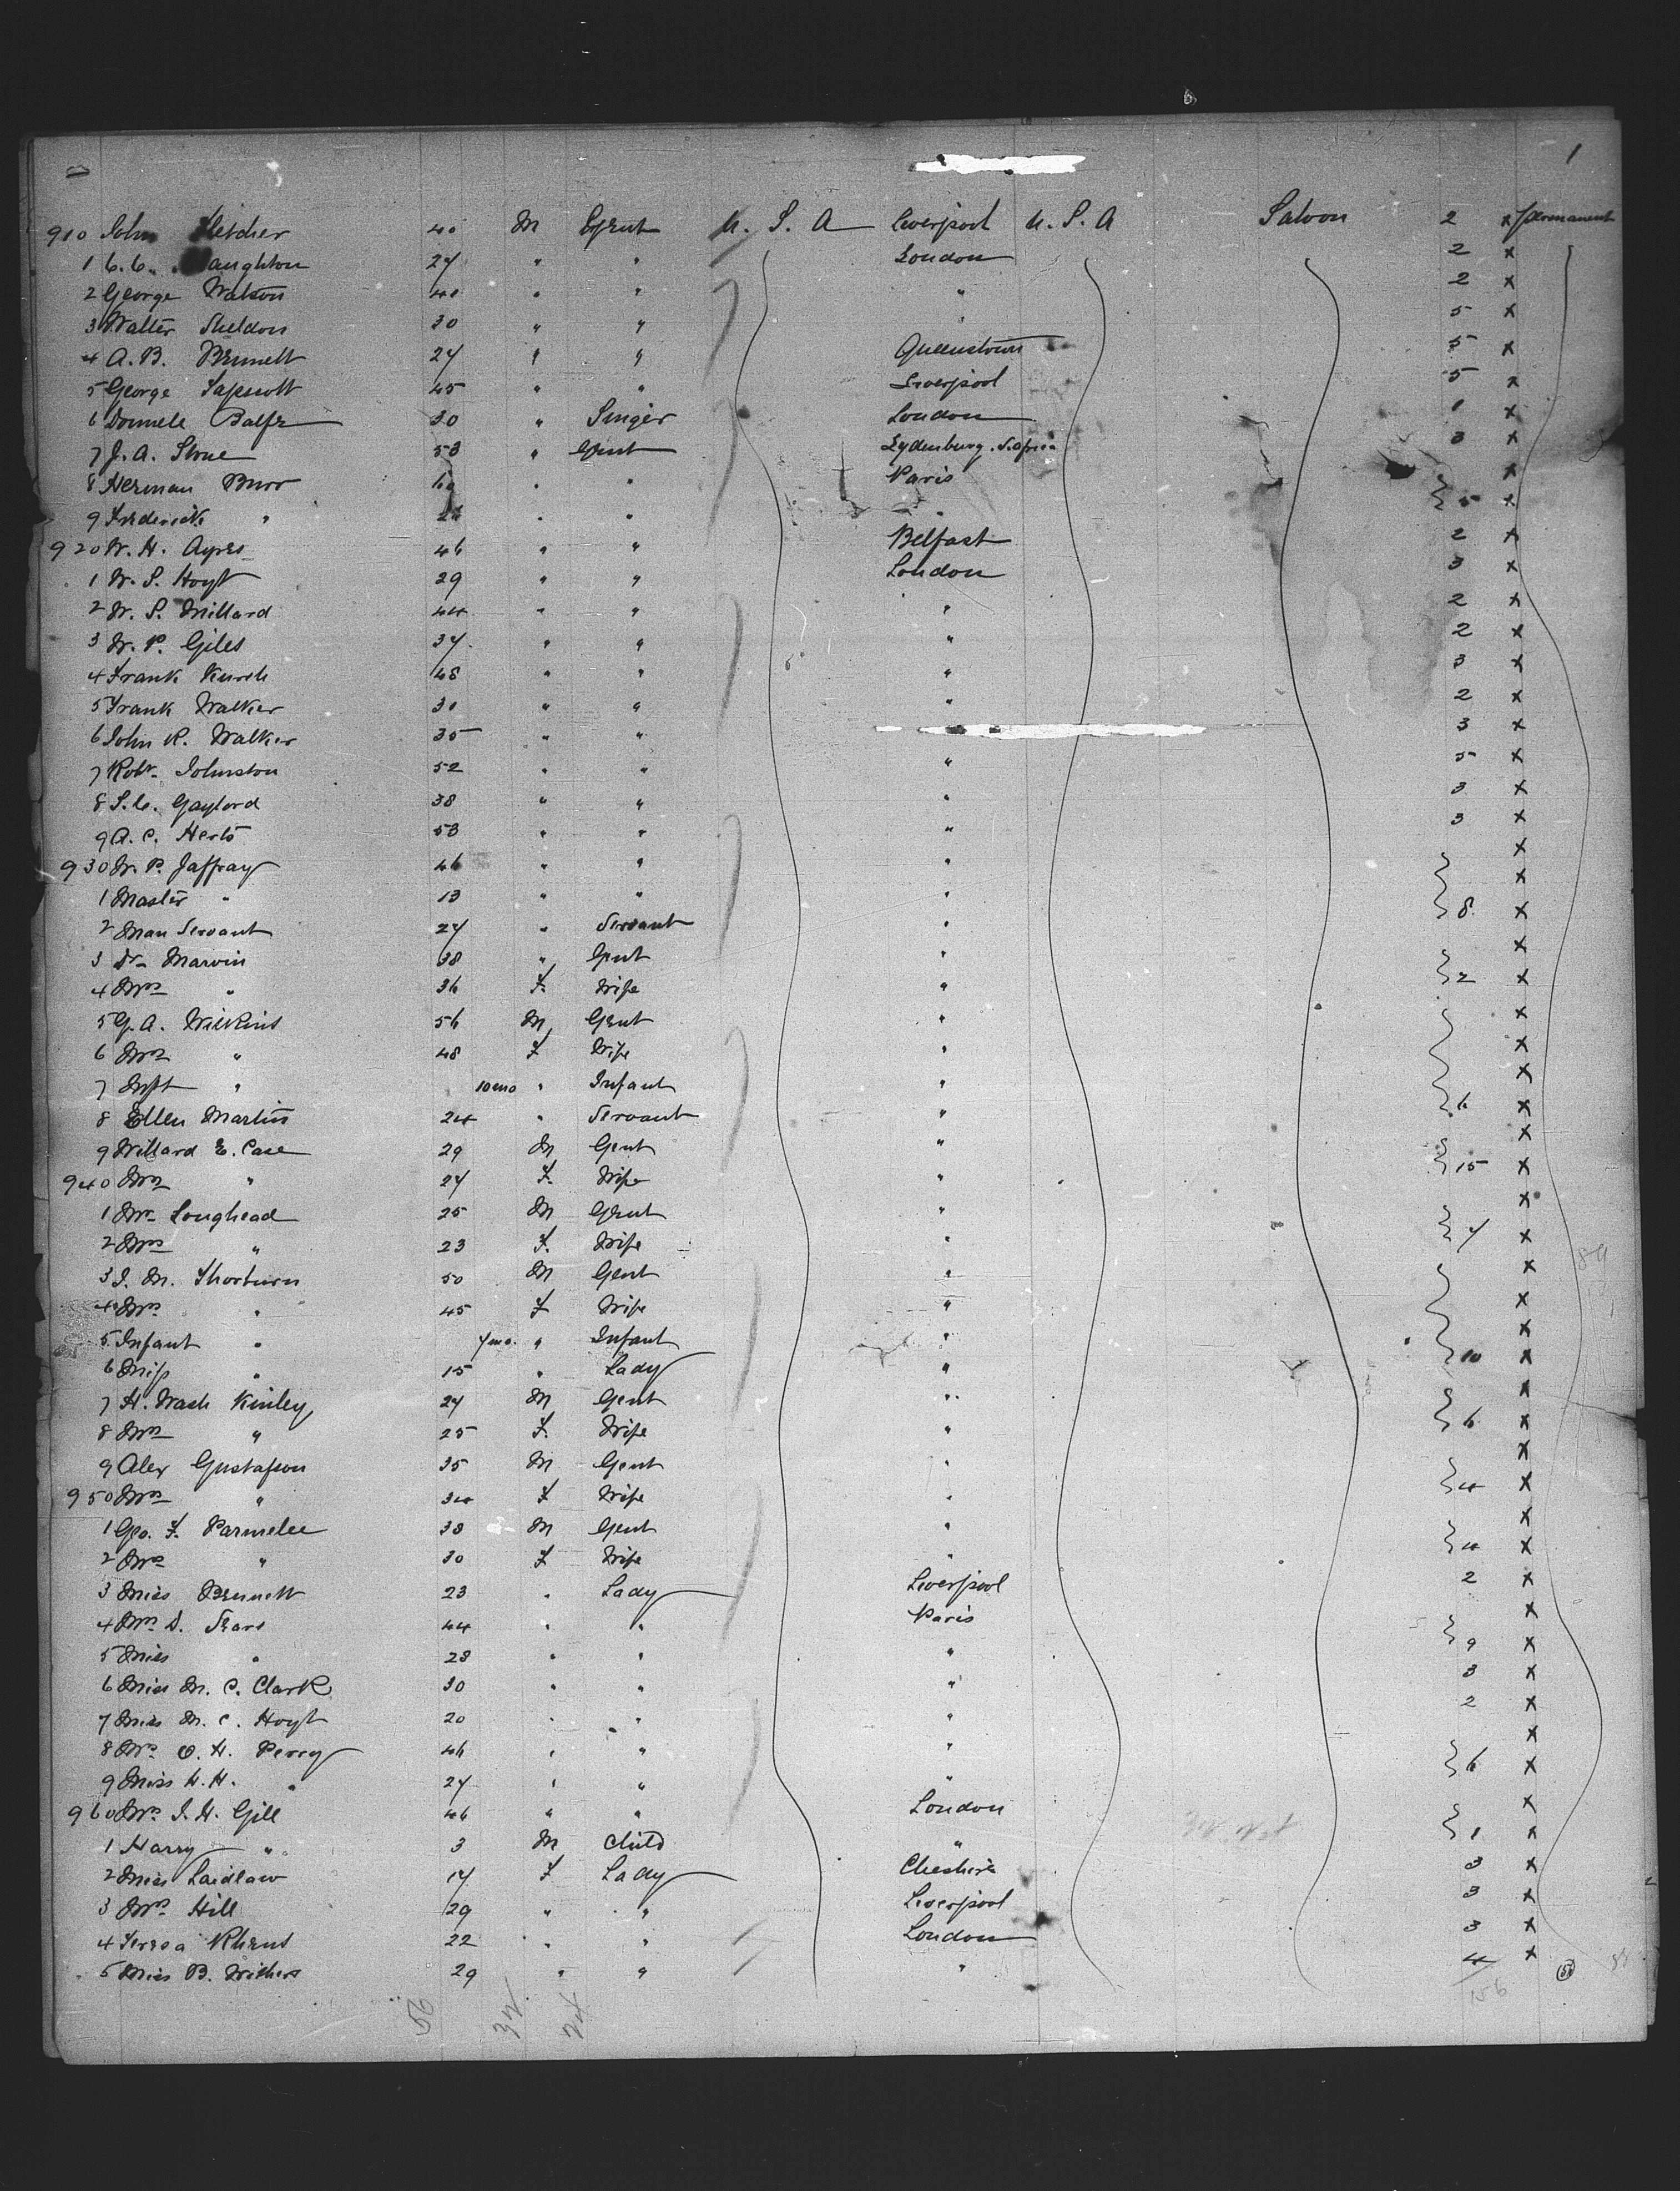 1
910 John Fletcher 40 M Gent U. S. A Liverpool U. S. A Saloon 2 x permanent
1 C.C. aughton 27 " " London 2 x
2 George Watson 40 " " " 2 x
3 Walter Sheldon 30 " " " 5 x
4 A.B. Bennett 27 " " Queenstown 5 x
5 George Tapscott 45 " " Liverpool 5 x
6 Balfr 30 " Singer London 1 x
7 J. A. 53 " Gent Lydenburg. S. Africa 3 x
8 Herman Burr 60 " " Paris x
9 Frederick " " " " 5 x
920 W. H. Ayres 46 " " Belfast 2 x
1 W. S. Hoyt 29 " " London 3 x
2 W. S. Millard 44 " " " 2 x
3 W. P. Giles 37 " " " 2 x
4 Frank 48 " " " 3 x
5 Frank Walker 30 " " " 2 x
6 John R. Walker 35 " " 3 x
7 Robt. Johnston 52 " " " 5 x
8 S. C. Gaylord 38 " " " 3 x
9 A. C. Herts 53 " " " 3 x
930 W. P. Jaffray 46 " " " x
1 Master " 13 " " " x
2 Man Servant 27 " Servant " 8 x
3 Dr Marvin 38 " Gent " x
4 Mrs " 36 F. Wife " 2 x
5 G. A. Wilkins 56 M Gent " x
6 Mrs " 48 F Wife " x
7 Inft " 10 mo " Infant " x
8 Ellen Martin 24 " Servant " 6 x
9 Willard E. Case 29 M Gent " x
940 Mrs " 27 F. Wife " 15 x
1 Mr Loughead 25 M Gent " x
2 Mrs " 23 F. Wife " 7 x
3 J. M. Thorburn 50 M Gent " x
4 Mrs " 45 F Wife " x
5 Infant " 7 mo. " Infant " x
6 Miss " 15 " Lady " 10 x
7 H. Wash Kinley 27 M Gent " x
8 Mrs " 25 F. Wife " 6 x
9 Alex Gustafson 35 M Gent " x
950 Mrs " 34 F Wife " 4 x
1 Geo. F. Parmelee 38 M Gent " x
2 Mrs " 30 F Wife " 4 x
3 Miss Bennett 23 " Lady Liverpool 2 x
4 Mrs D. Sears 44 " " Paris x
5 Miss " 28 " " " 9 x
6 Miss M. C. Clark 30 " " " 3 x
7 Miss M. C. Hoyt 20 " " " 2 x
8 Mrs O. H. Perry 46 " " " x
9 Miss H. H. " 27 " " " 6 x
960 Mrs J. H. Gill 46 " " London x
1 Harry " 3 M Child " 1 x
2 Miss Laidlaw 17 F Lady Cheshire 3 x
3 Mrs Hill 29 " " Liverpool 3 x
4 Teresa 22 " " London 3 x
5 Miss B. Withers 29 " " " 4 x
156
32 24